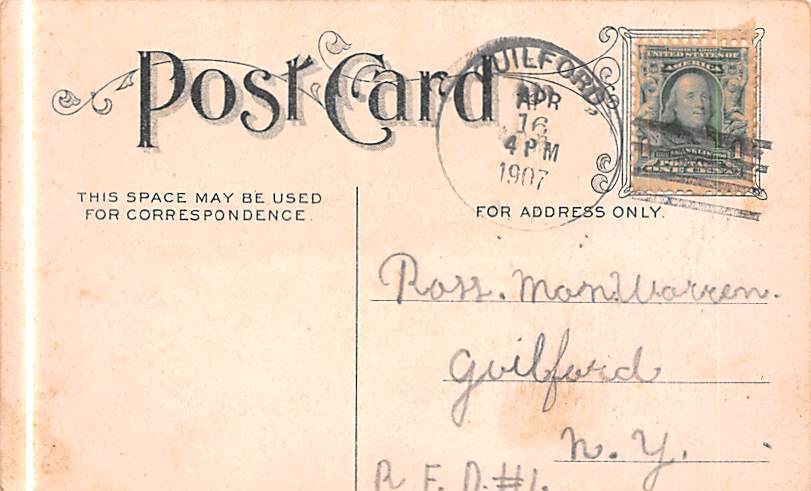 Post Card
GUILFORD
APR
16
4 PM
1907
SERIES 1902
UNITED STATES OF
AMERICA
FRANKLIN
POSTAGE
ONE CENT
THIS SPACE MAY BE USED
FOR CORRESPONDENCE.
FOR ADDRESS ONLY.
Ross. Mon.Warren.
Guilford
N. Y.
R. F. D. #1.